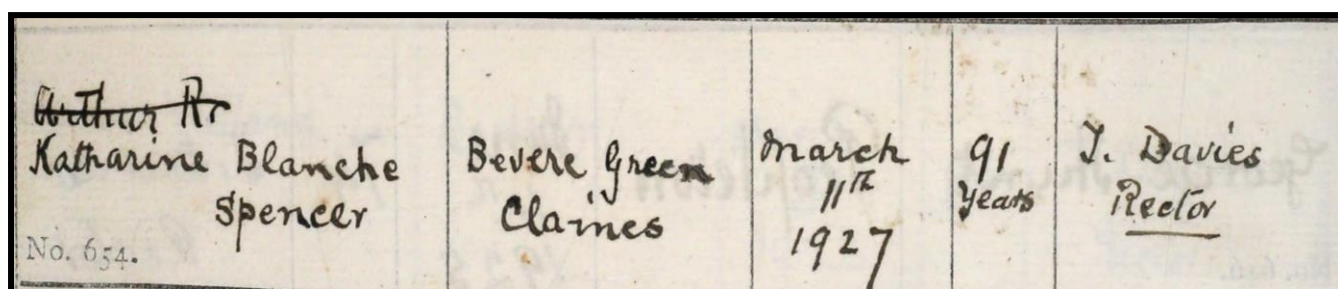 Arthur Rr
Katharine Blanche
Spencer
No. 654.
Bevere Green
Claines
March
11th
1927
91
Years
T. Davies
Rector